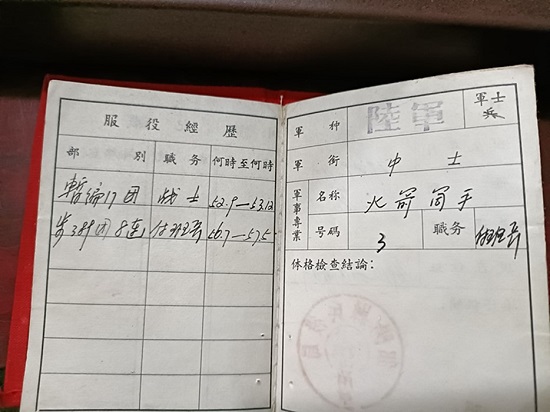 服役經歷
部別 職务 何時至何時
暫编17团 战士 52.9—53.12
付班長 56.7—57.5
軍种 陸軍 軍士
兵
軍銜 中士
軍事專業 名称 火箭筒手
号码 3 職务 付班長
体格檢查結論：